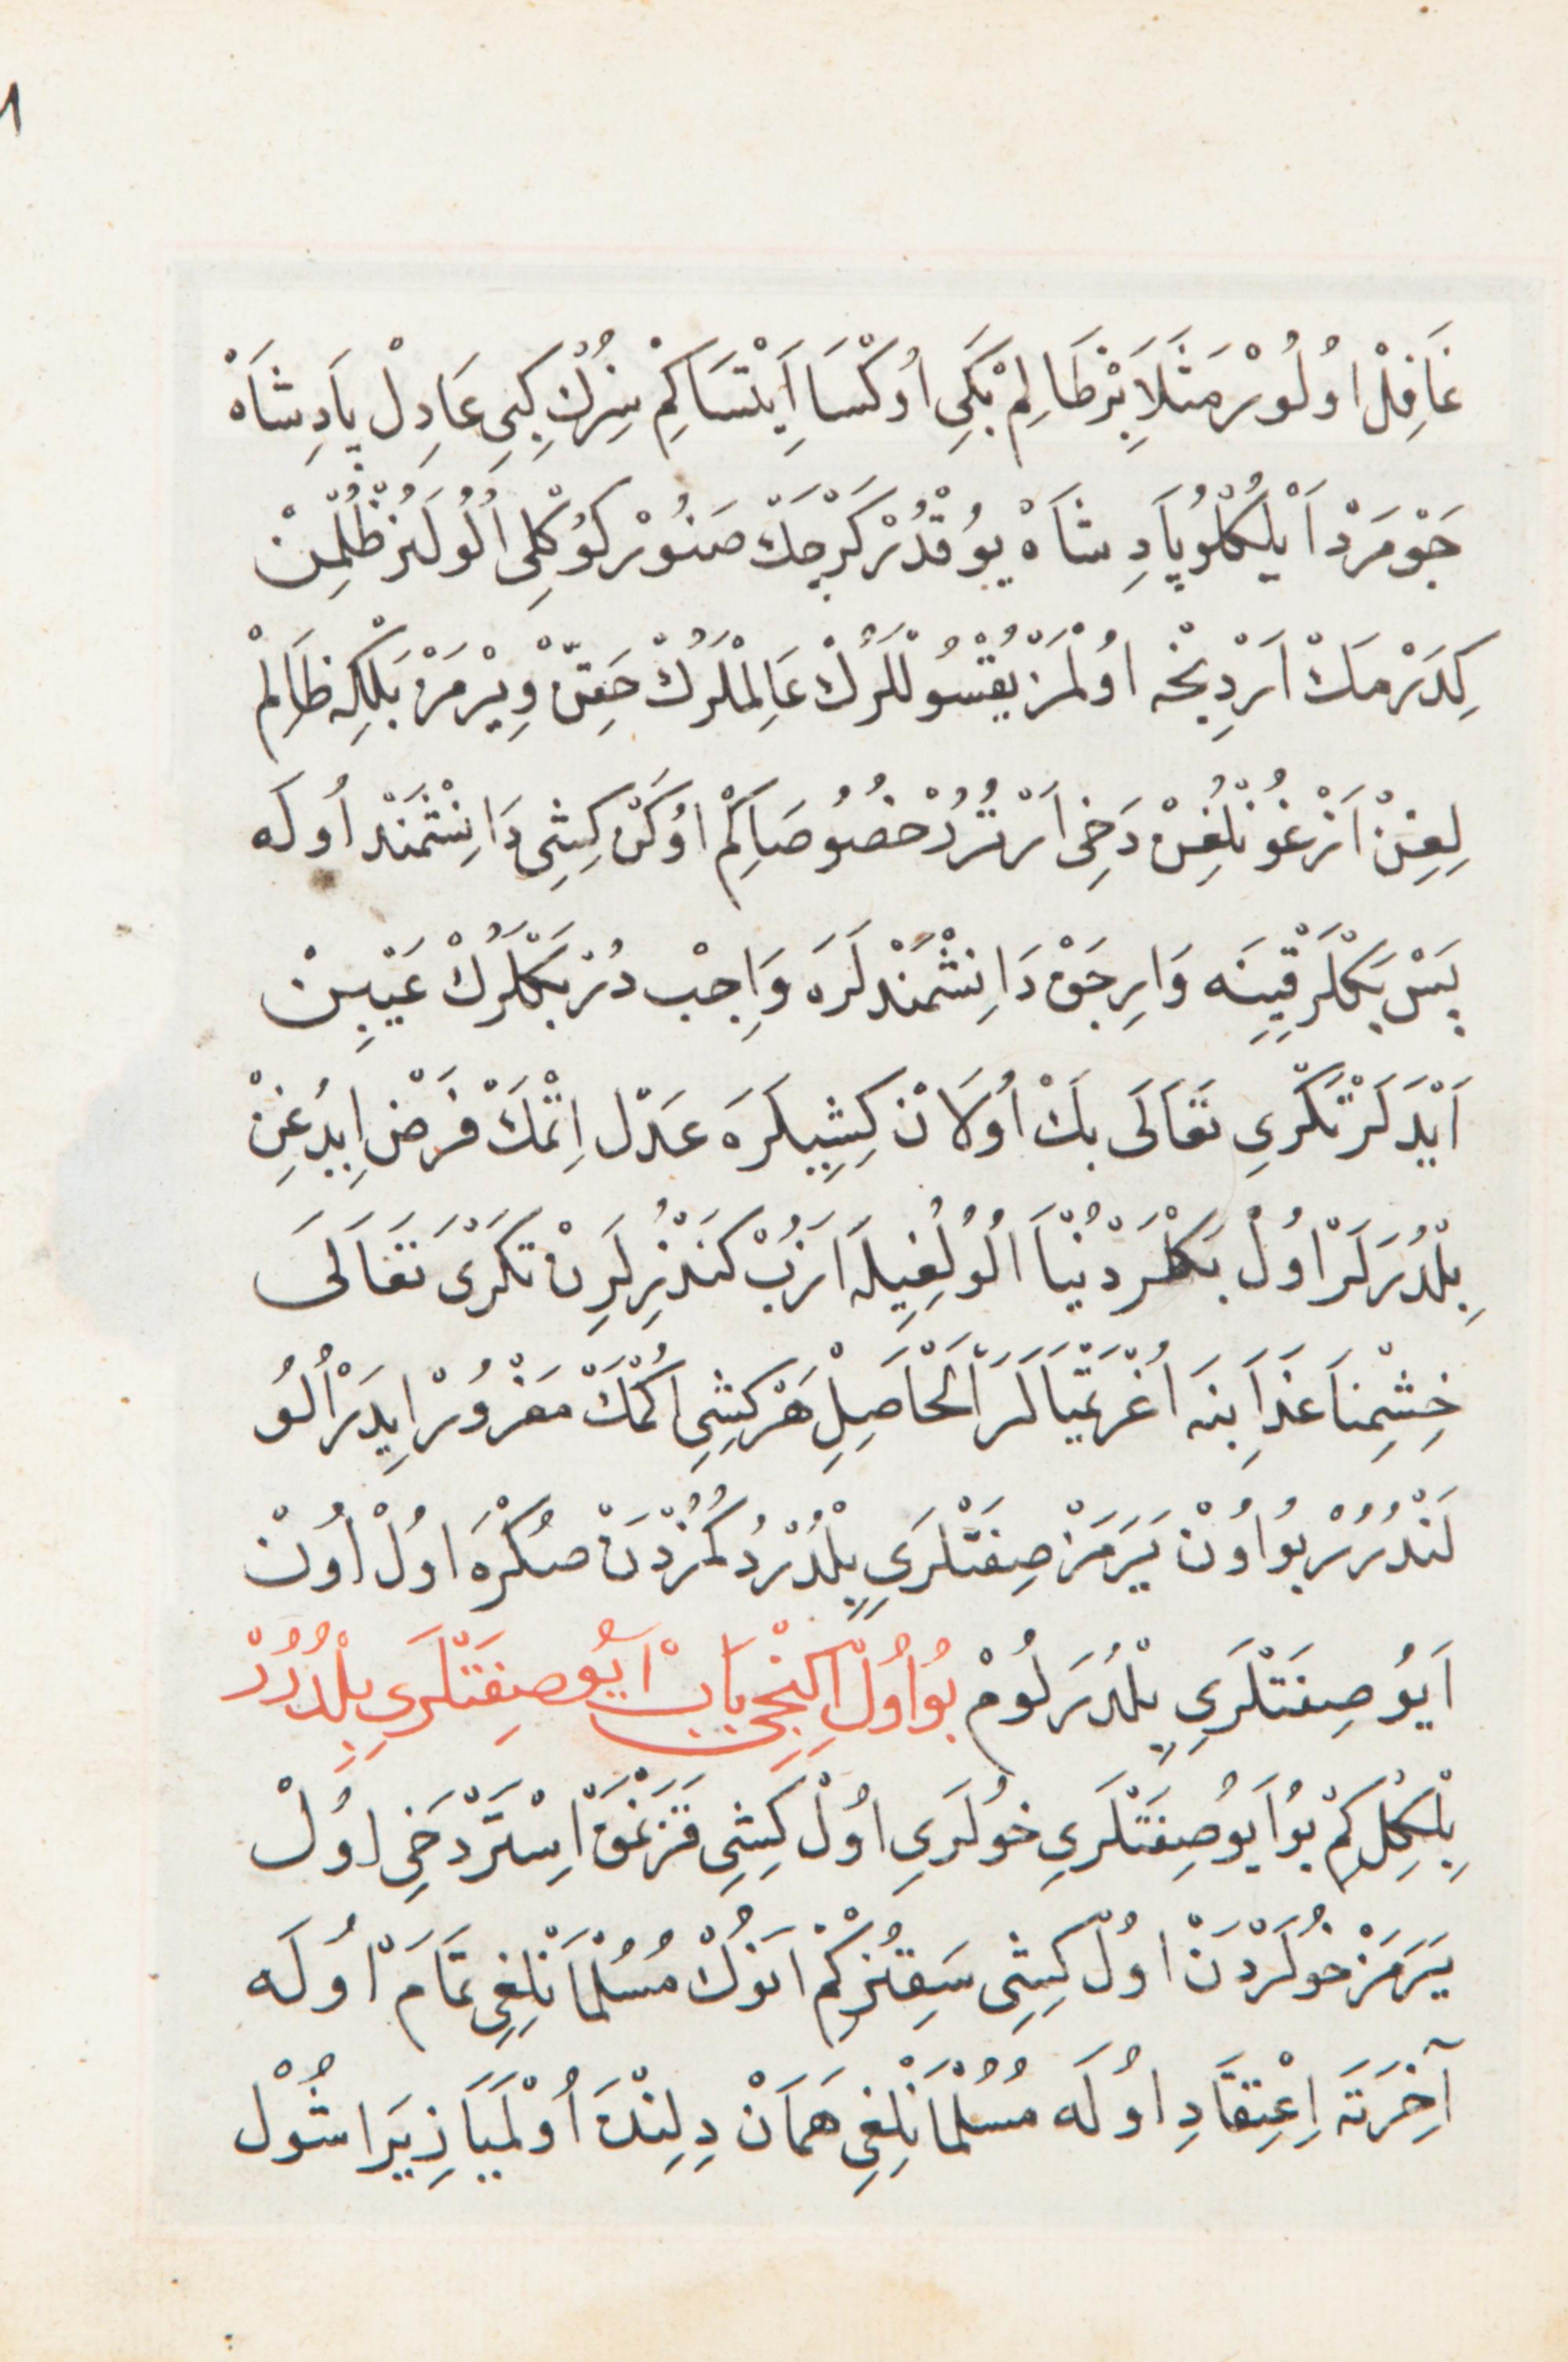 غَافِلْ اوُلُورْ مَثَلَا بِرْ ظَالِمْ بَكِی اوُكْسَا اَيِتْسَا كِمْ سِزُكْ كِبِی عَادِلْ پَادِشَاهْ
جَوْمَرْدْ اَيْلُكْلُو پَادِشَاهْ يوُقْدُرْ كَرْچَكْ صَنُورْ كوُكْلِی اُلُولَنُرْ ظُلْمِنْ
كِدَرْمَكْ اَرْدِنْجَه اوُلْمَزْ يُقْسُولْلَرُكْ عَالِمْلَرُكْ حَقِّنْ وِيرْمَزْ بَلْكِه ظَالِمْ
لِغِنْ اَزْغُونْلِغِنْ دَخِی اَرْتُرُرْ خُصُوصَا كِمْ اوُكَنْ كِشِی دَانِشْمَنْدْ اُولَه
پَسْ بَكْلَرْ قَتِينَه وَارِجَقْ دَانِشْمَنْدْلَرَه وَاجِبْ دُرْ بَكْلَرُكْ عَيْبِينْ
اَيْدَلَرْ تَكْرِی تَعَالَی بَكْ اُولَانْ كِشِيلَرَه عَدْل اِتْمَكْ فَرْضْ اِيدُغِنْ
بِلْدُرَلَرْ اوُلْ بَكْلَرْ دُنْيَا اُلُولُغِيلَه اَزُبْ كَنْدُزِلَرِنْ تَكْرِی تَعَالَی
خِشْمِنَا عَذَابِنَه اُغْرَتْمَيَالَرْ اَلْحَاصِلْ هَرْ كِشِی اُكْمَكْ مَغْرُورْ اِيدَرْ اُلُو
لَنْدُرُرْ بُو اوُنْ يَرَمَزْ صِفَتْلَرِی بِلْدُرْدُكُمُزْدَنْ صُكْرَه اوُلْ اوُنْ
اَيُو صِفَتْلَرِی بِلْدُرَلُومْ بُو اوُلْ اِكِنْجِی بَابْ اَيُو صِفَتْلَرِی بِلْدُرُرْ
بِلْكِلْ كِمْ بُو اَيُو صِفَتْلَرِی خُولَرِی اوُلْ كِشِی قَزَنْمَقْ اِسْتَرْ دَخِی اوُلْ
يَرَمَزْ خُولَرْدَنْ اوُلْ كِشِی سَقِنُرْ كِمْ اَنُوكْ مُسُلْمَانْلِغِی تَمَامْ اُولَه
آخِرَتَه اِعْتِقَادِ اوُلَه مُسُلْمَانْلِغِی هَمَانْ دِلِنْدَه اُولْمَيَا زِيرَا شُولْ